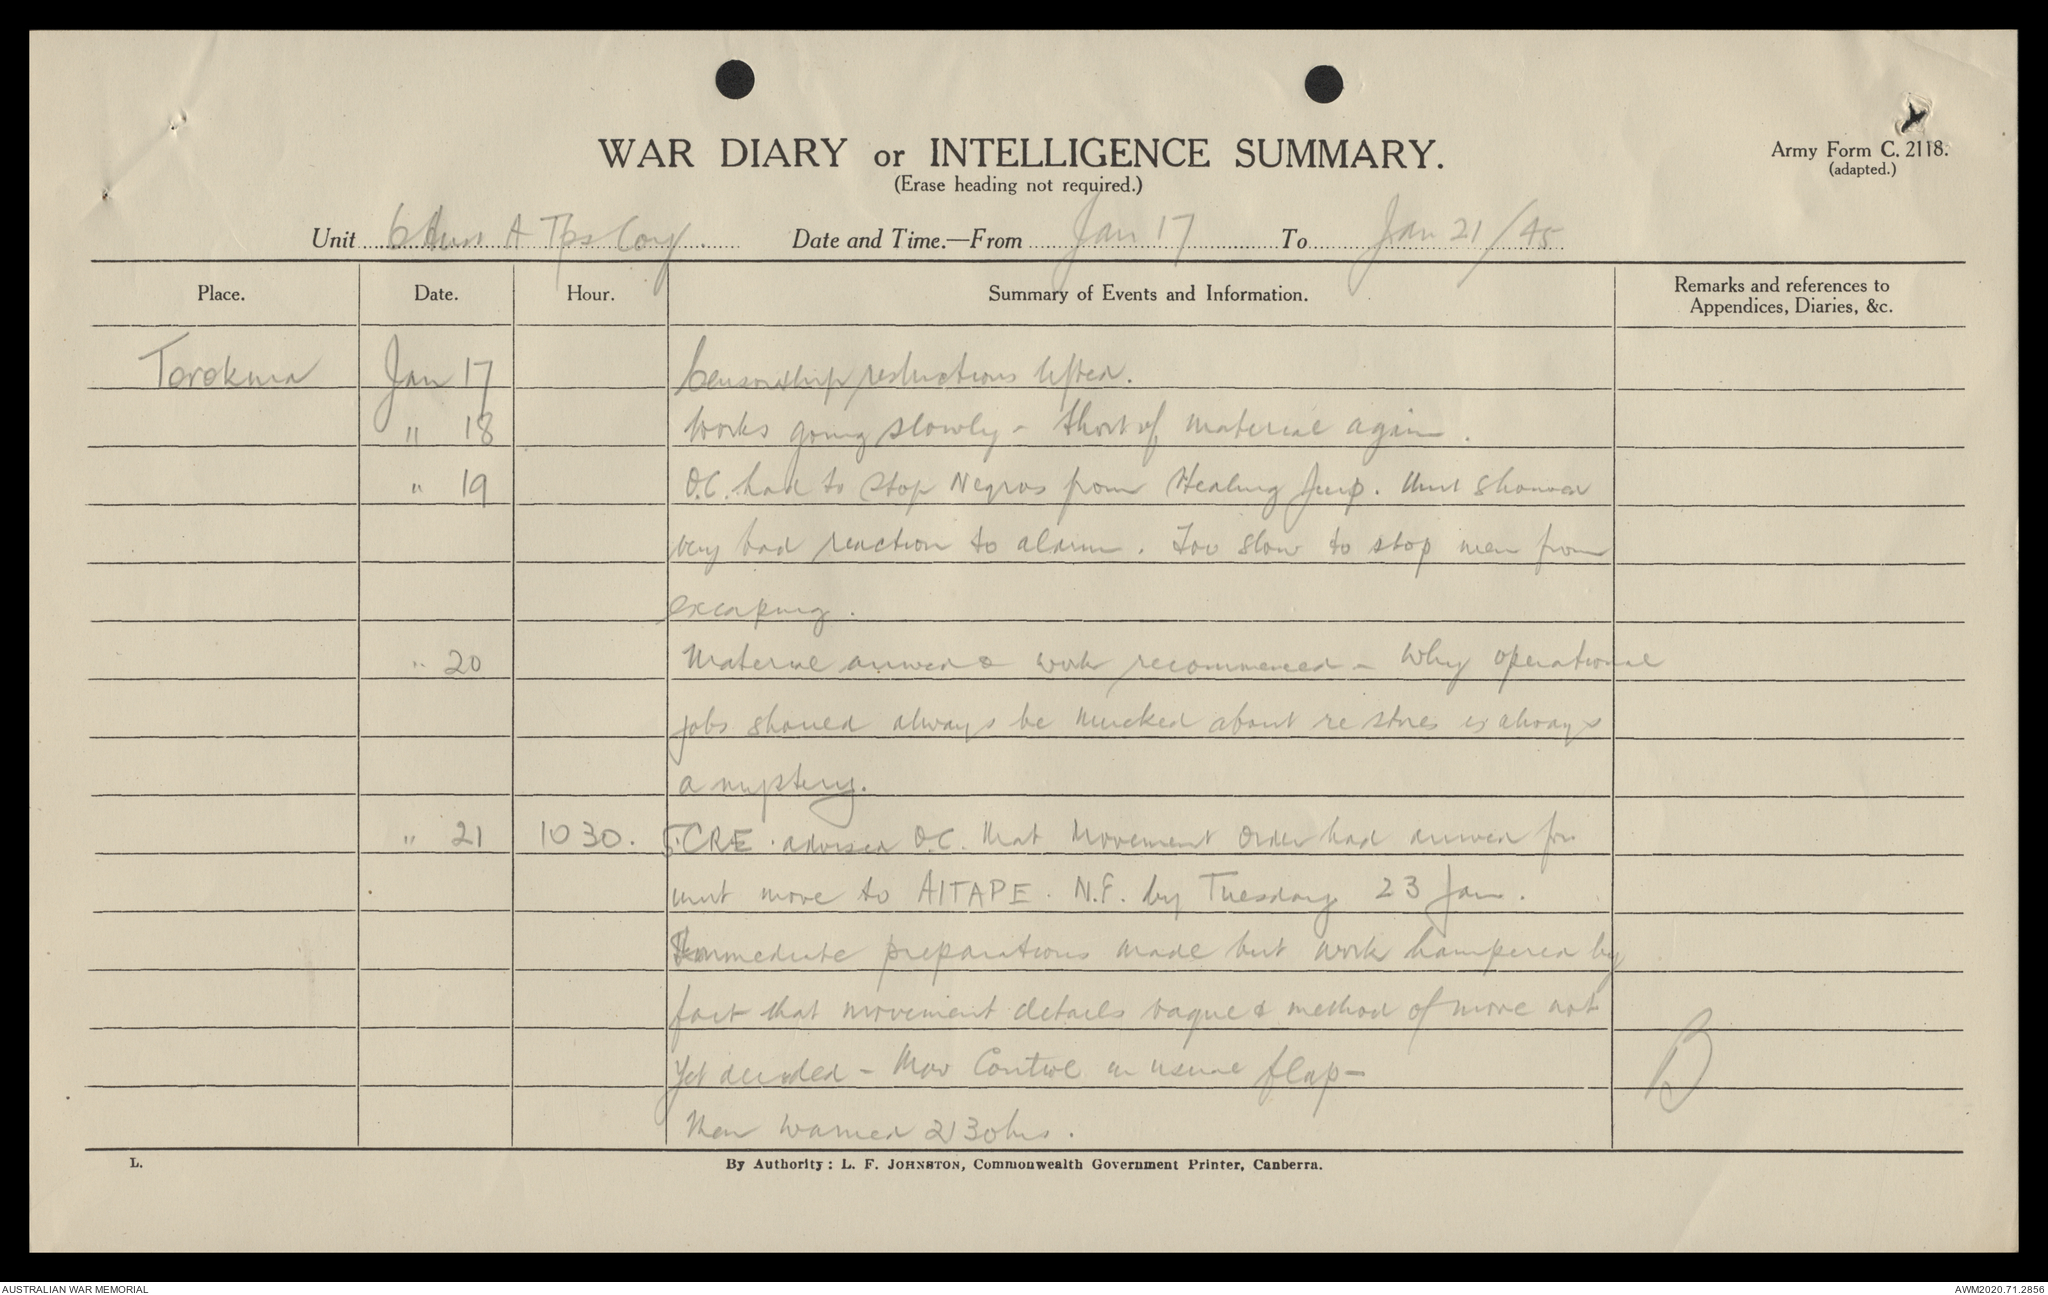 WAR DIARY or INTELLIGENCE SUMMARY.
Army Form C. 2118.
(adapted.)
(Erase heading not required.)
Unit 6 Aust A Tps Coy. Date and Time.—From Jan 17 To Jan 21/45
Place. Date. Hour. Summary of Events and Information. Remarks and references to Appendices, Diaries, &c.
Torokina Jan 17 Censorship restrictions lifted.
" 18 Works going slowly - short of material again.
" 19 O.C. had to stop Negros from stealing Jeep. Unit showed
very bad reaction to alarm. Too slow to stop men from
escaping.
" 20 Material arrived & work recommenced - Why operational
jobs should always be mucked about re stores is always
a mystery.
" 21 1030. CRE advised O.C. that Movement Order had arrived for
unit move to AITAPE. by Tuesday 23 Jan.
Immediate preparations made but work hampered by
fact that movement details vague & method of move not
yet decided - Mov Control in usual flap -
Men warned 2130hrs.
B
L. By Authority: L. F. JOHNSTON, Commonwealth Government Printer, Canberra.
AUSTRALIAN WAR MEMORIAL AWM2020.71.2856